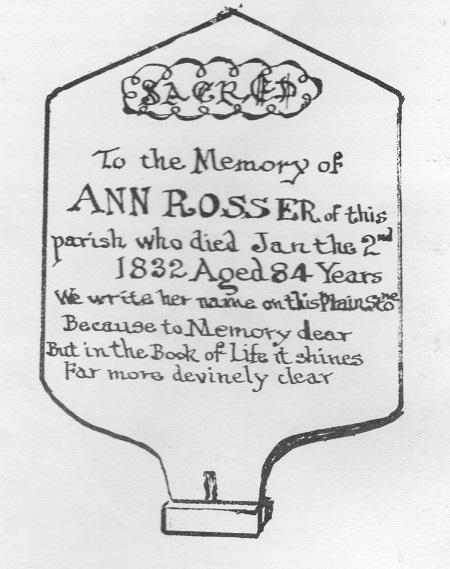 SACRED
To the Memory of
ANN ROSSER of this
parish who died Jan the 2nd
1832 Aged 84 Years
We write her name on this Plain Stone
Because to Memory dear
But in the Book of Life it shines
Far more devinely clear